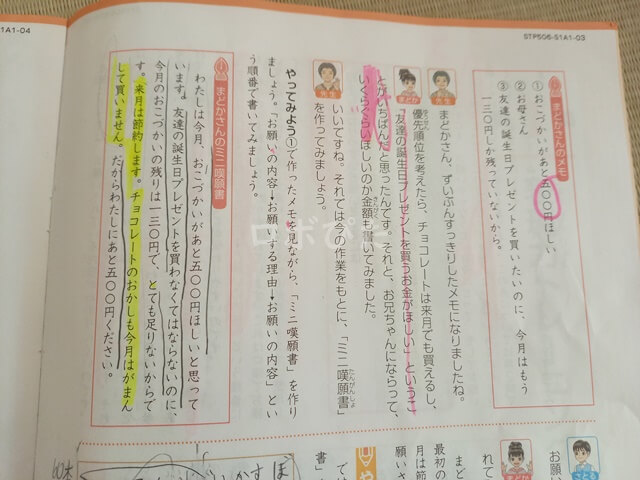 1A1-04
STP506-S1A1-03
まどかさんのメモ
①おこづかいがあと五〇〇円ほしい
②お母さん
③友達の誕生日プレゼントを買いたいのに、今月はもう
一三〇円しか残っていないから。
先生
まどかさん、ずいぶんすっきりしたメモになりましたね。
まどか
優先順位を考えたら、チョコレートは来月でも買えるし、
「友達の誕生日プレゼントを買うお金がほしい」というこ
とがいちばんだと思ったんです。それと、お兄ちゃんにならって、
いくらぐらいほしいのか金額も書いてみました。
先生
いいですね。それでは今の作業をもとに、「ミニ嘆願書」
たんがんしょ
を作ってみましょう。
やってみよう①で作ったメモを見ながら、「ミニ嘆願書」を作り
ましょう。「お願いの内容→お願いする理由→お願いの内容」とい
う順番で書いてみましょう。
まどかさんのミニ嘆願書
わたしは今月、おこづかいがあと五〇〇円ほしいと思って
います。友達の誕生日プレゼントを買わなくてはならないのに、
今月のおこづかいの残りは一三〇円で、とても足りないからで
す。来月は節約します。チョコレートのおかしも今月はがまん
して買いません。だからわたしにあと五〇〇円ください。
さとる
お願い
まどか
れて
まど
最初の
月は節
願いさ
や
では
書」